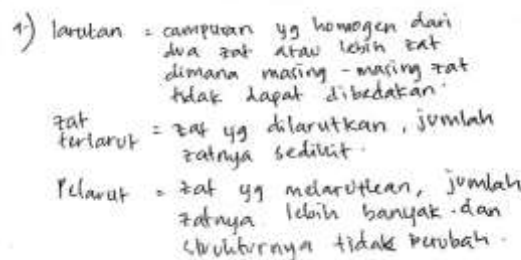 1) larutan = campuran yg homogen dari
dua zat atau lebih zat
dimana masing-masing zat
tidak dapat dibedakan.
zat
terlarut = zat yg dilarutkan, jumlah
zatnya sedikit.
Pelarut = zat yg melarutkan, jumlah
zatnya lebih banyak dan
strukturnya tidak berubah.